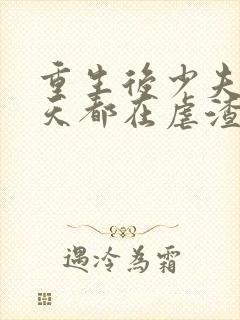 重生後少夫
天都在虐渣
遇冷為霜